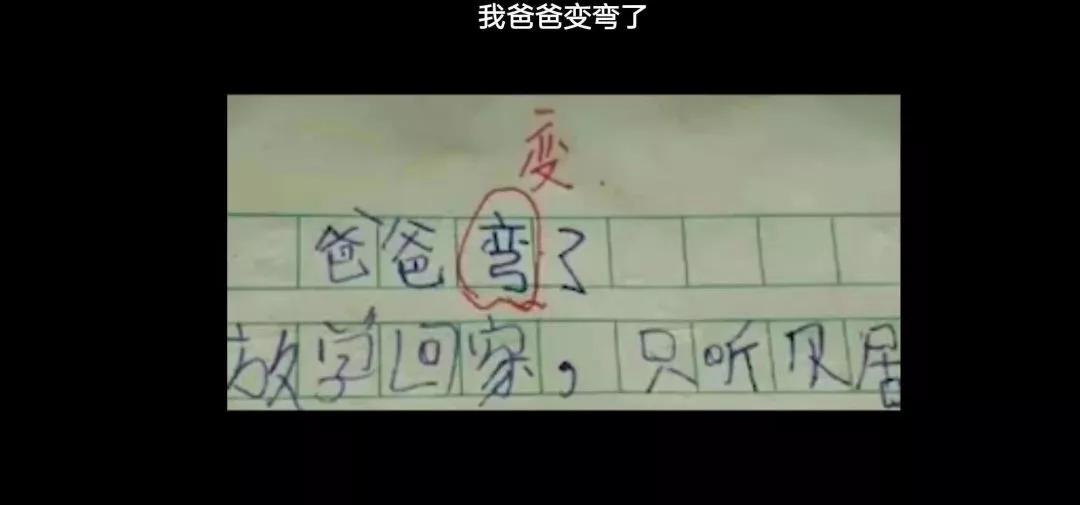 我爸爸变弯了
变
爸爸弯了
放学回家，只听见居